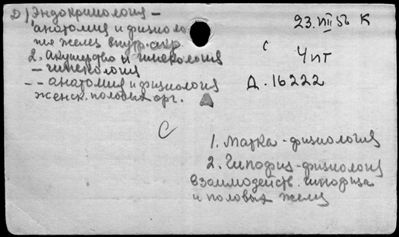 D) Эндокринология –
анатомия и физиоло
гия желез внутр. секр.
2. Акушерство и гинекология
– гинекология
– – анатомия и физиология
женск. половых орг.
23.VIII 56 К
с
Чпт
Д. 16222
С
1. Матка – физиология
2. Гипофиз – физиология
взаимодейств. гипофиза
и половых желез